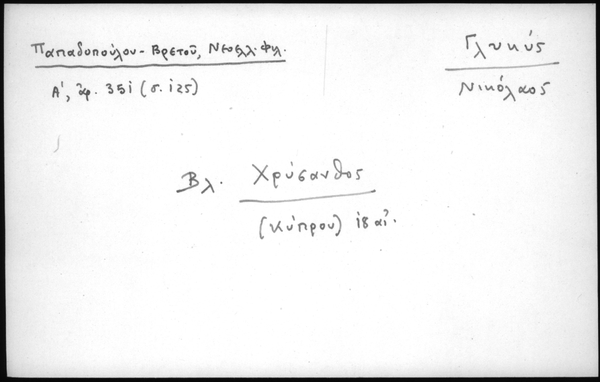 Παπαδοπούλου-Βρετοῦ, Νεοελλ. Φιλ.
Α', ἀρ. 351 (σ. 125)
Γλυκύς
Νικόλαος
Βλ. Χρύσανθος
(Κύπρου) 18 αἰ.